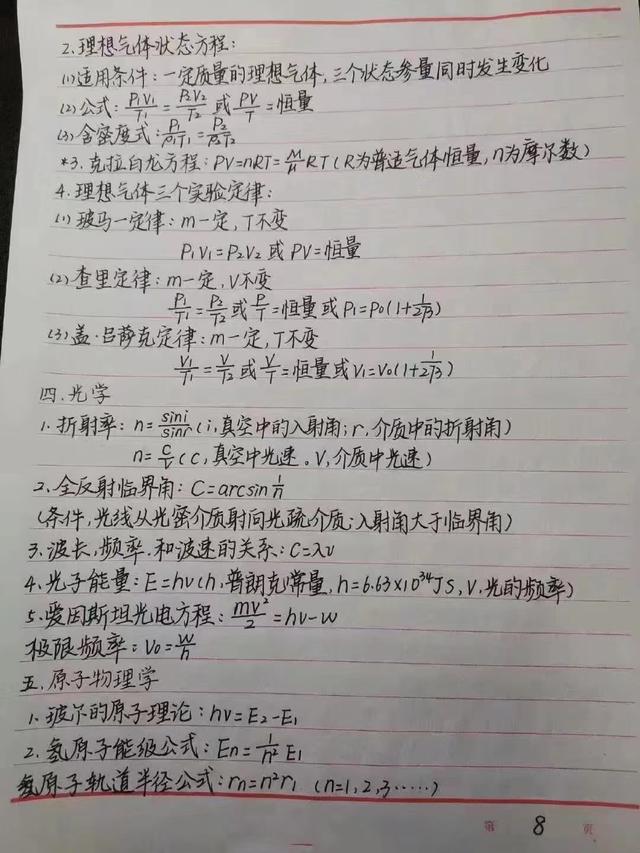 2.理想气体状态方程:
(1)适用条件:一定质量的理想气体,三个状态参量同时发生变化
(2)公式:P₁V₁/T₁=P₂V₂/T₂或PV/T=恒量
(3)含密度式:P₁/ρ₁T₁=P₂/ρ₂T₂
*3.克拉白龙方程:PV=nRT=M/μRT(R为普适气体恒量,n为摩尔数)
4.理想气体三个实验定律:
(1)玻马一定律:m一定,T不变
P₁V₁=P₂V₂或PV=恒量
(2)查里定律:m一定,V不变
P₁/T₁=P₂/T₂或P/T=恒量或P₁=P₀(1+1/273)
(3)盖·吕萨克定律:m一定,T不变
V₁/T₁=V/T₂或V/T=恒量或V₁=V₀(1+1/273)
四.光学
1.折射率:n=sini/sinr(i,真空中的入射角;r,介质中的折射角)
n=C/V(C,真空中光速。V,介质中光速)
2.全反射临界角:C=arcsin1/n
(条件,光线从光密介质射向光疏介质;入射角大于临界角)
3.波长,频率.和波速的关系:C=λν
4.光子能量:E=hν(h,普朗克常量,h=6.63×10³⁴JS,V,光的频率)
5.爱因斯坦光电方程:mv²/2=hν-w
极限频率:ν₀=w/h
五.原子物理学
1.玻尔的原子理论:hν=E₂-E₁
2.氢原子能级公式:En=1/n²E₁
氢原子轨道半径公式:rn=n²r₁ (n=1,2,3……)
第 8 页